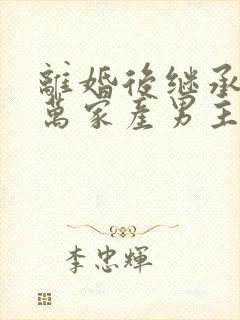 離婚後继承
萬家產男主
李忠輝